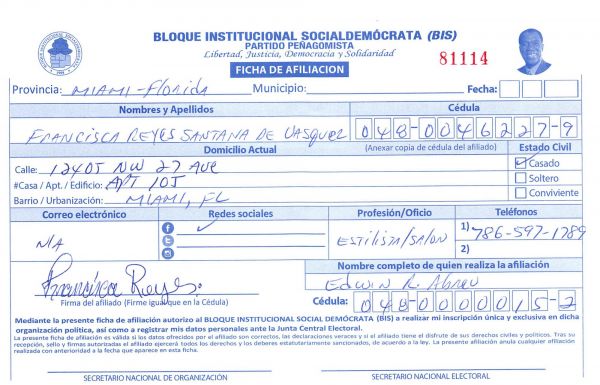 BLOQUE INSTITUCIONAL SOCIALDEMÓCRATA (BIS)
PARTIDO PEÑAGOMISTA
Libertad, Justicia, Democracia y Solidaridad
FICHA DE AFILIACION
81114
Provincia: MIAMI-FLORIDA Municipio: Fecha:
Nombres y Apellidos Cédula
FRANCISCA REYES SANTANA DE VASQUEZ 048-0046227-9
Domicilio Actual (Anexar copia de cédula del afiliado) Estado Civil
Calle: 12405 NW 27 AVE Casado
#Casa / Apt. / Edificio: APT 105 Soltero
Barrio / Urbanización: MIAMI, FL Conviviente
Correo electrónico Redes sociales Profesión/Oficio Teléfonos
N/A ESTILISTA/SALON 1) 786-597-1789
2)
Nombre completo de quien realiza la afiliación
Francisca Reyes Edwin R. Abreu
Firma del afiliado (Firme igual que en la Cédula) Cédula: 048-0000015-2
Mediante la presente ficha de afiliación autorizo al BLOQUE INSTITUCIONAL SOCIAL DEMÓCRATA (BIS) a realizar mi inscripción única y exclusiva en dicha
organización política, así como a registrar mis datos personales ante la Junta Central Electoral.
La presente ficha de afiliación es válida si los datos ofrecidos por el afiliado son correctos, las declaraciones veraces y si el afiliado tiene el disfrute de sus derechos civiles y políticos. Tras su
recepción, sello y firmas autorizadas el afiliado ejercerá todos los derechos y los deberes estatutariamente sancionados, de acuerdo a la ley. La presente afiliación anula cualquier afiliación
realizada con anterioridad a la fecha que aparece en esta ficha.
SECRETARIO NACIONAL DE ORGANIZACIÓN SECRETARIO NACIONAL ELECTORAL